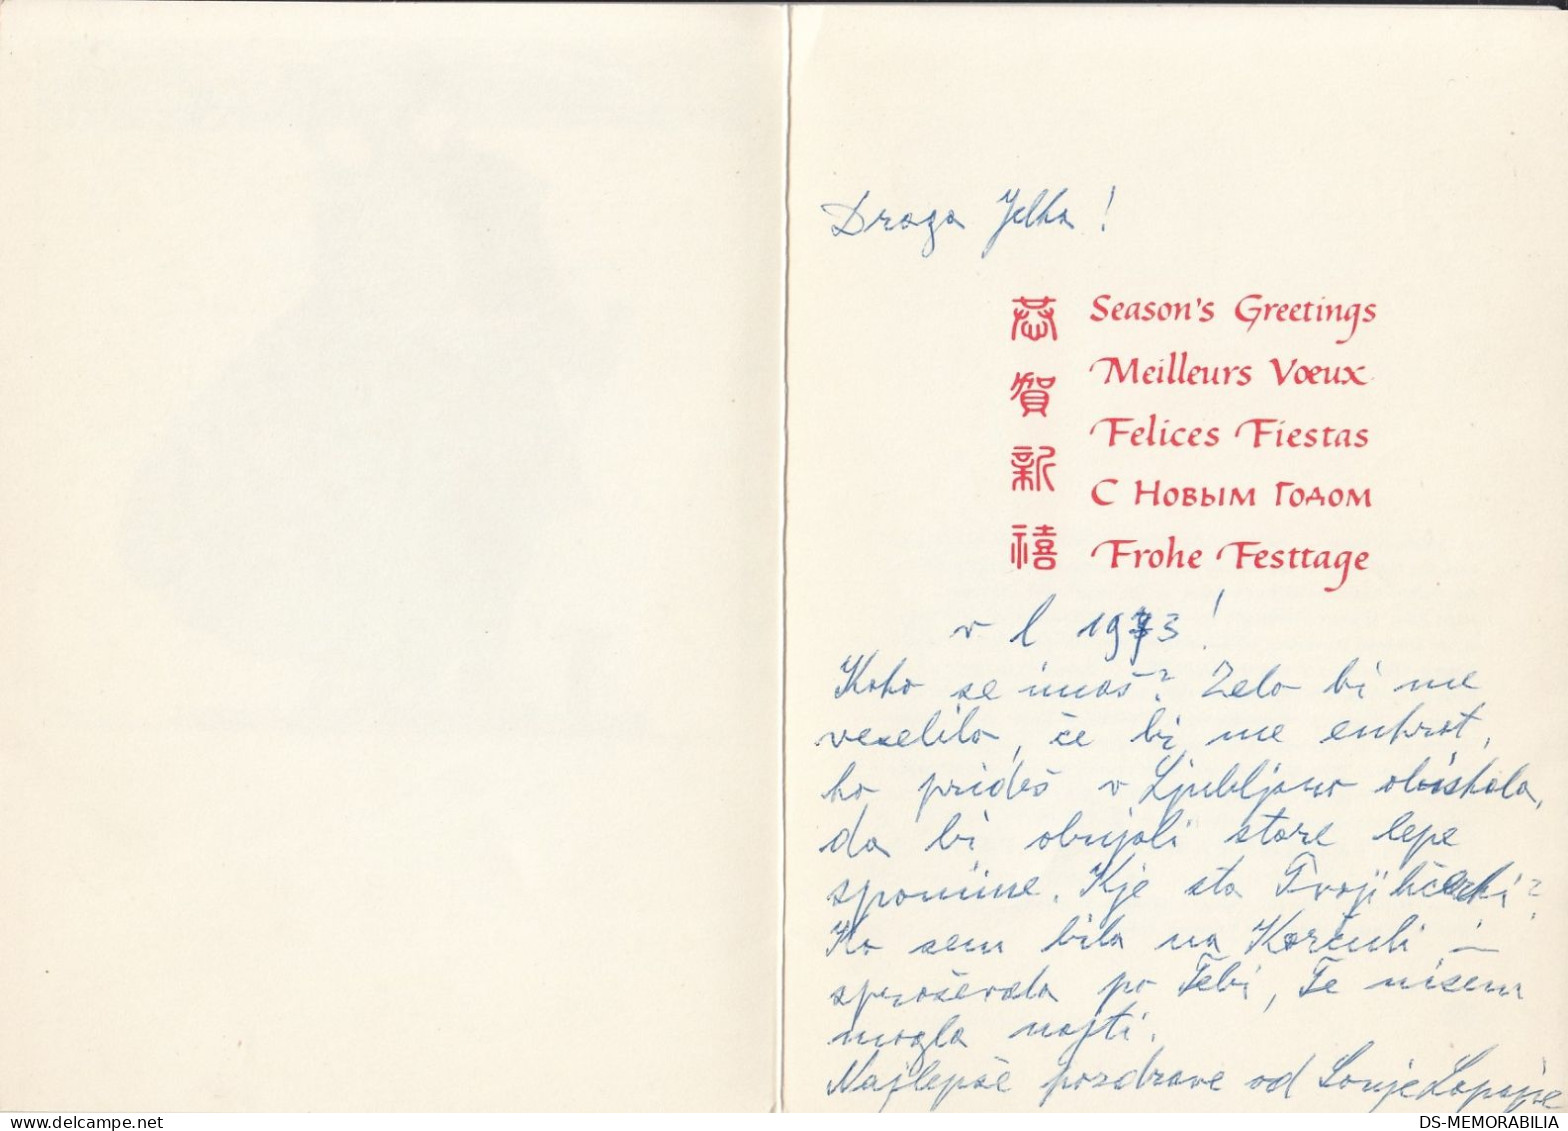 Draga Jelka!
恭賀新禧
Season's Greetings
Meilleurs Vœux
Felices Fiestas
С Новым Годом
Frohe Festtage
v l 1973!
Kako se imaš? Zelo bi me
veselilo, če bi me enkrat,
ko prideš v Ljubljano obiskala,
da bi obujali stare lepe
spomine. Kje sta Tvoji hčerki?
Ko sem bila na Korčuli in
spraševala po Tebi, Te nisem
mogla najti.
Najlepše pozdrave od Sonje
DS-MEMORABILIA